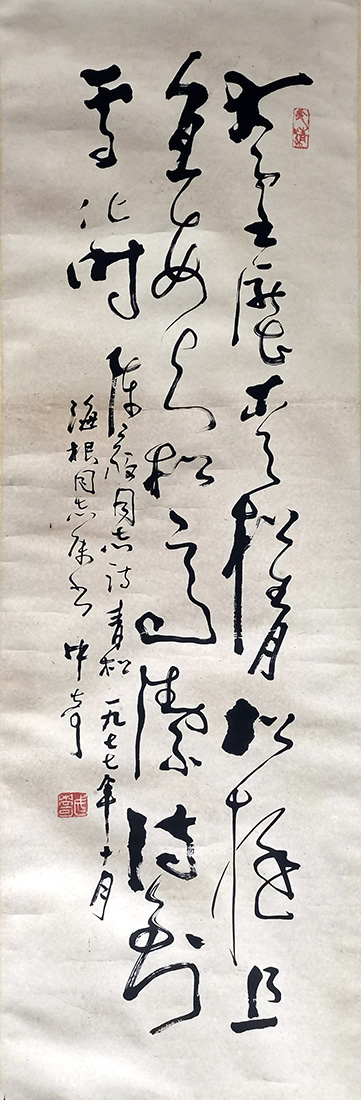 大雪壓青松青松挺且
直要知松高潔待到
雪化时
陈毅同志诗青松 一九七七年十月
海根同志属书 中奇